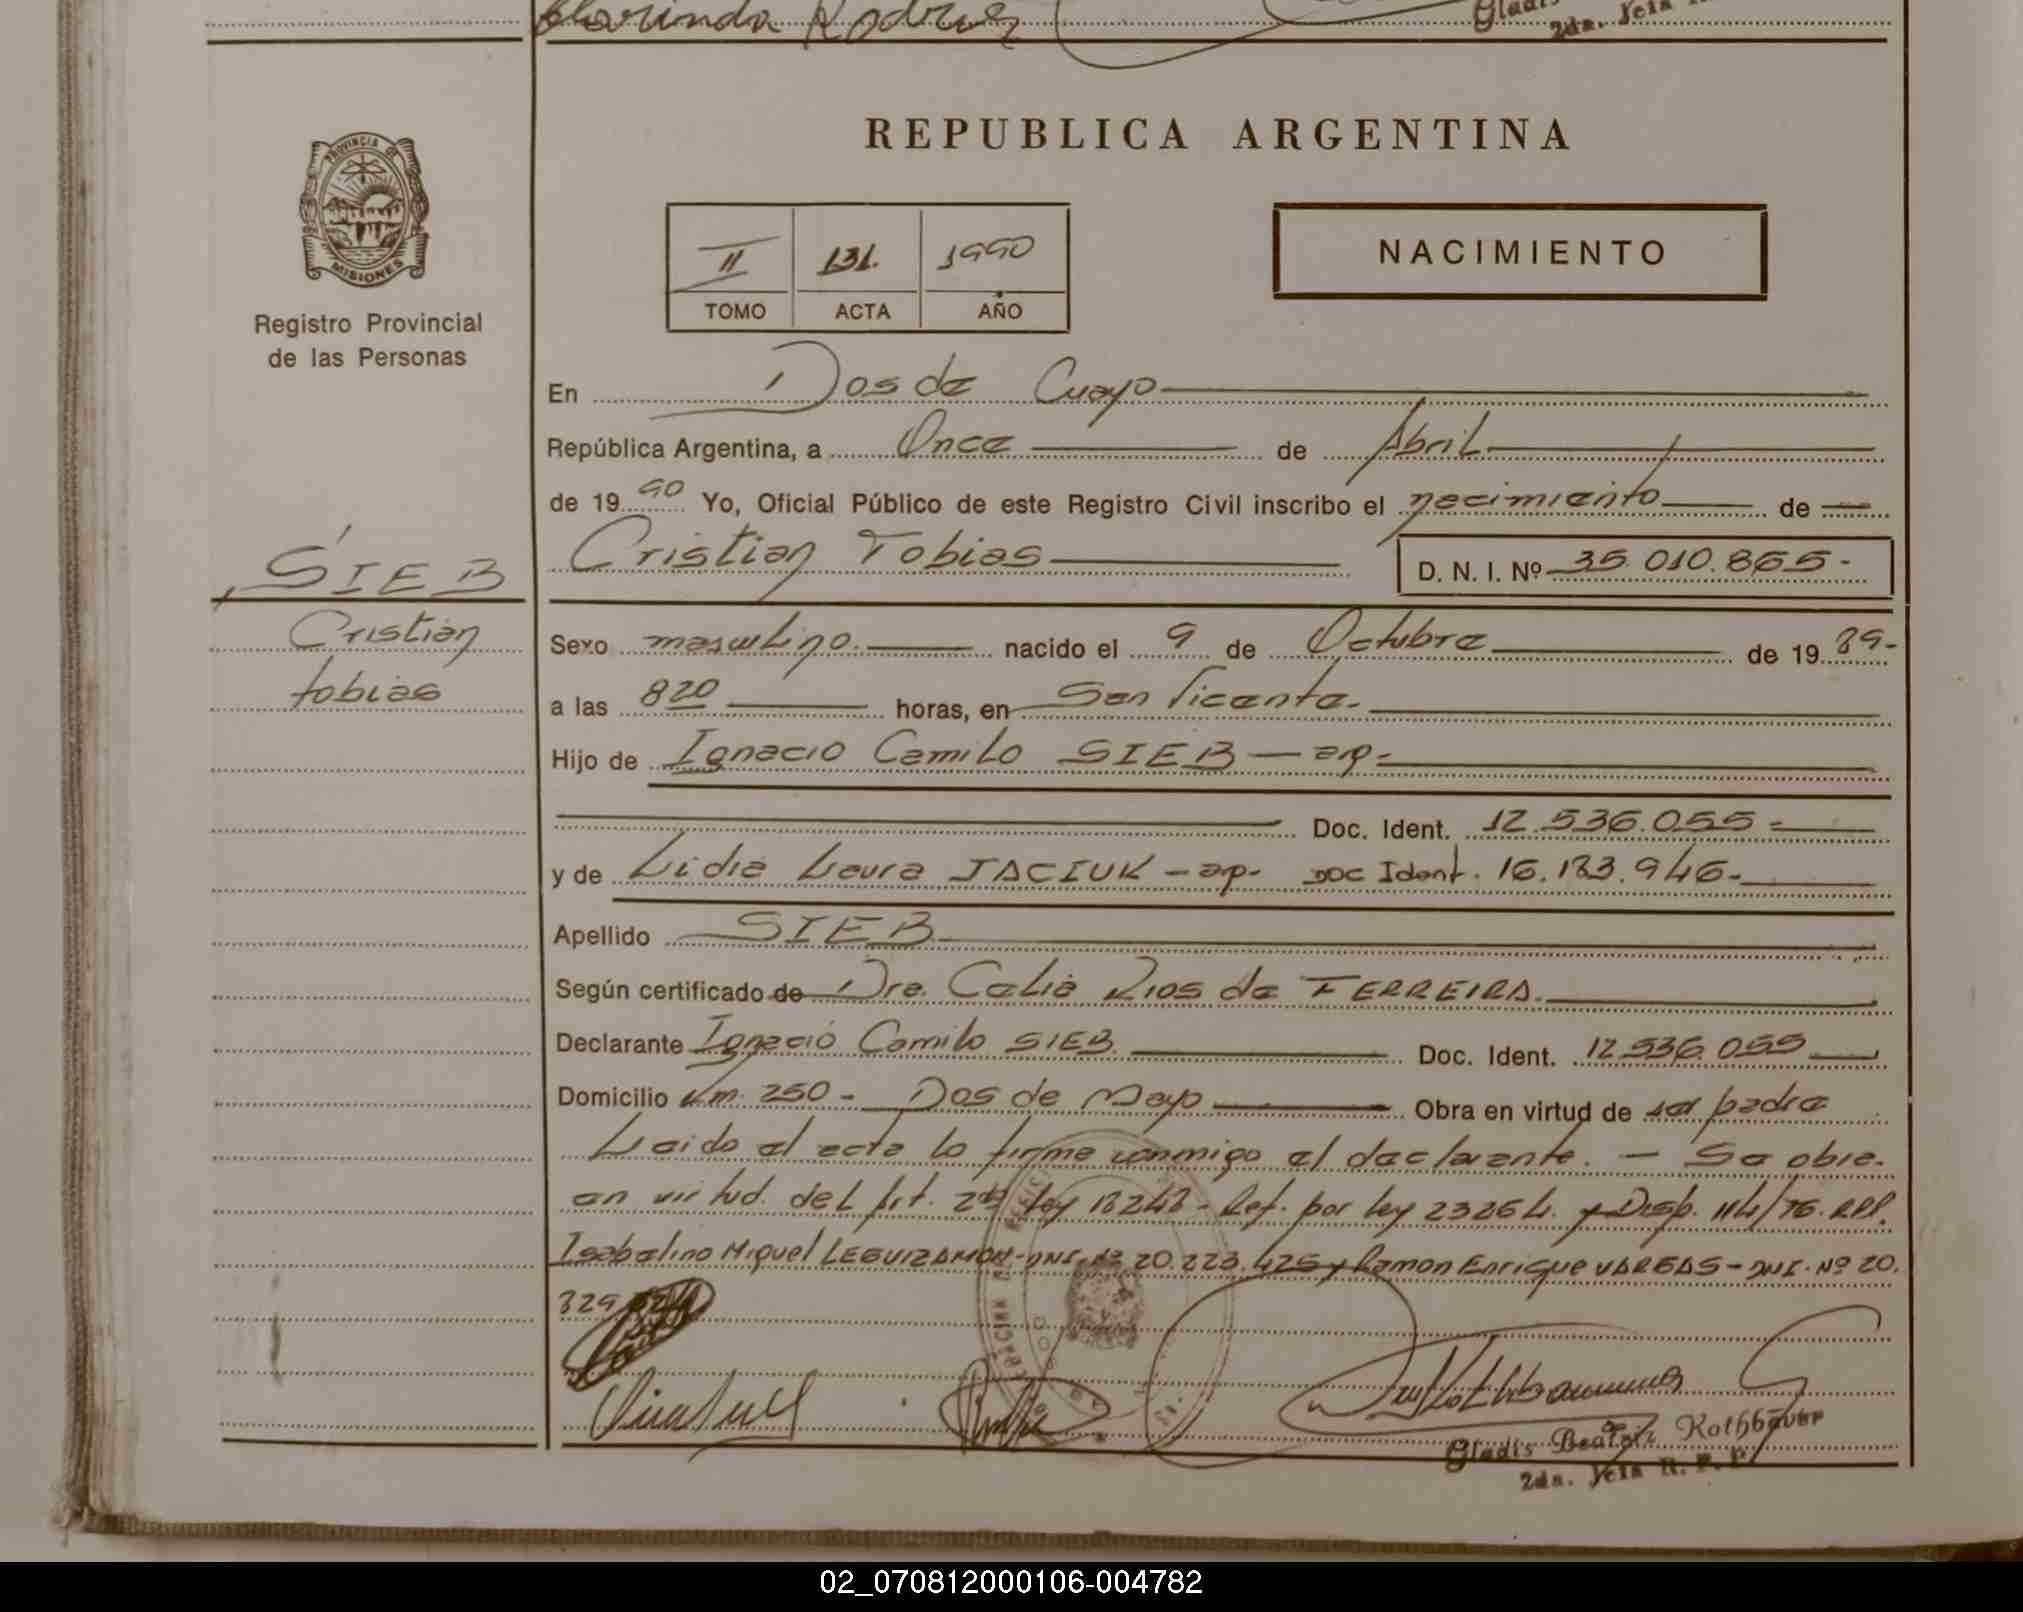 Clarinda Rodrguez
Gladis
2da. Jefa
REPUBLICA ARGENTINA
PROVINCIA DE
MISIONES
Registro Provincial
de las Personas
II 131. 1990
TOMO ACTA AÑO
NACIMIENTO
En Dos de Mayo
República Argentina, a Once de Abril
de 1990 Yo, Oficial Público de este Registro Civil inscribo el nacimiento de
Cristian Tobias D. N. I. Nº 35.010.865-
SIEB
Cristian
tobias
Sexo masculino. nacido el 9 de Octubre de 1989-
a las 820 horas, en San Vicente.
Hijo de Ignacio Camilo SIEB - ap-
Doc. Ident. 12.536.055-
y de Lidia Laura JACIUK - ap- Doc Ident. 16.183.946-
Apellido SIEB
Según certificado de Dra. Celia Rios de FERREIRA.
Declarante Ignacio Camilo SIEB Doc. Ident. 12.536.055
Domicilio Km. 250 - Dos de Mayo Obra en virtud de ser padre
Leido el acta lo firma conmigo el declarante. - Se obia-
en virtud del Art. 2do ley 18248 - Ref. por ley 23264. y Disp. 114/76. RPP.
Isabelino Miguel LEGUIZAMON - DNI. Nº 20.223.425 y Ramon Enrique VARGAS - DNI. Nº 20.
329.
Gladis Beatriz Rothbauer
2da. Jefa R. P. P.
02_070812000106-004782